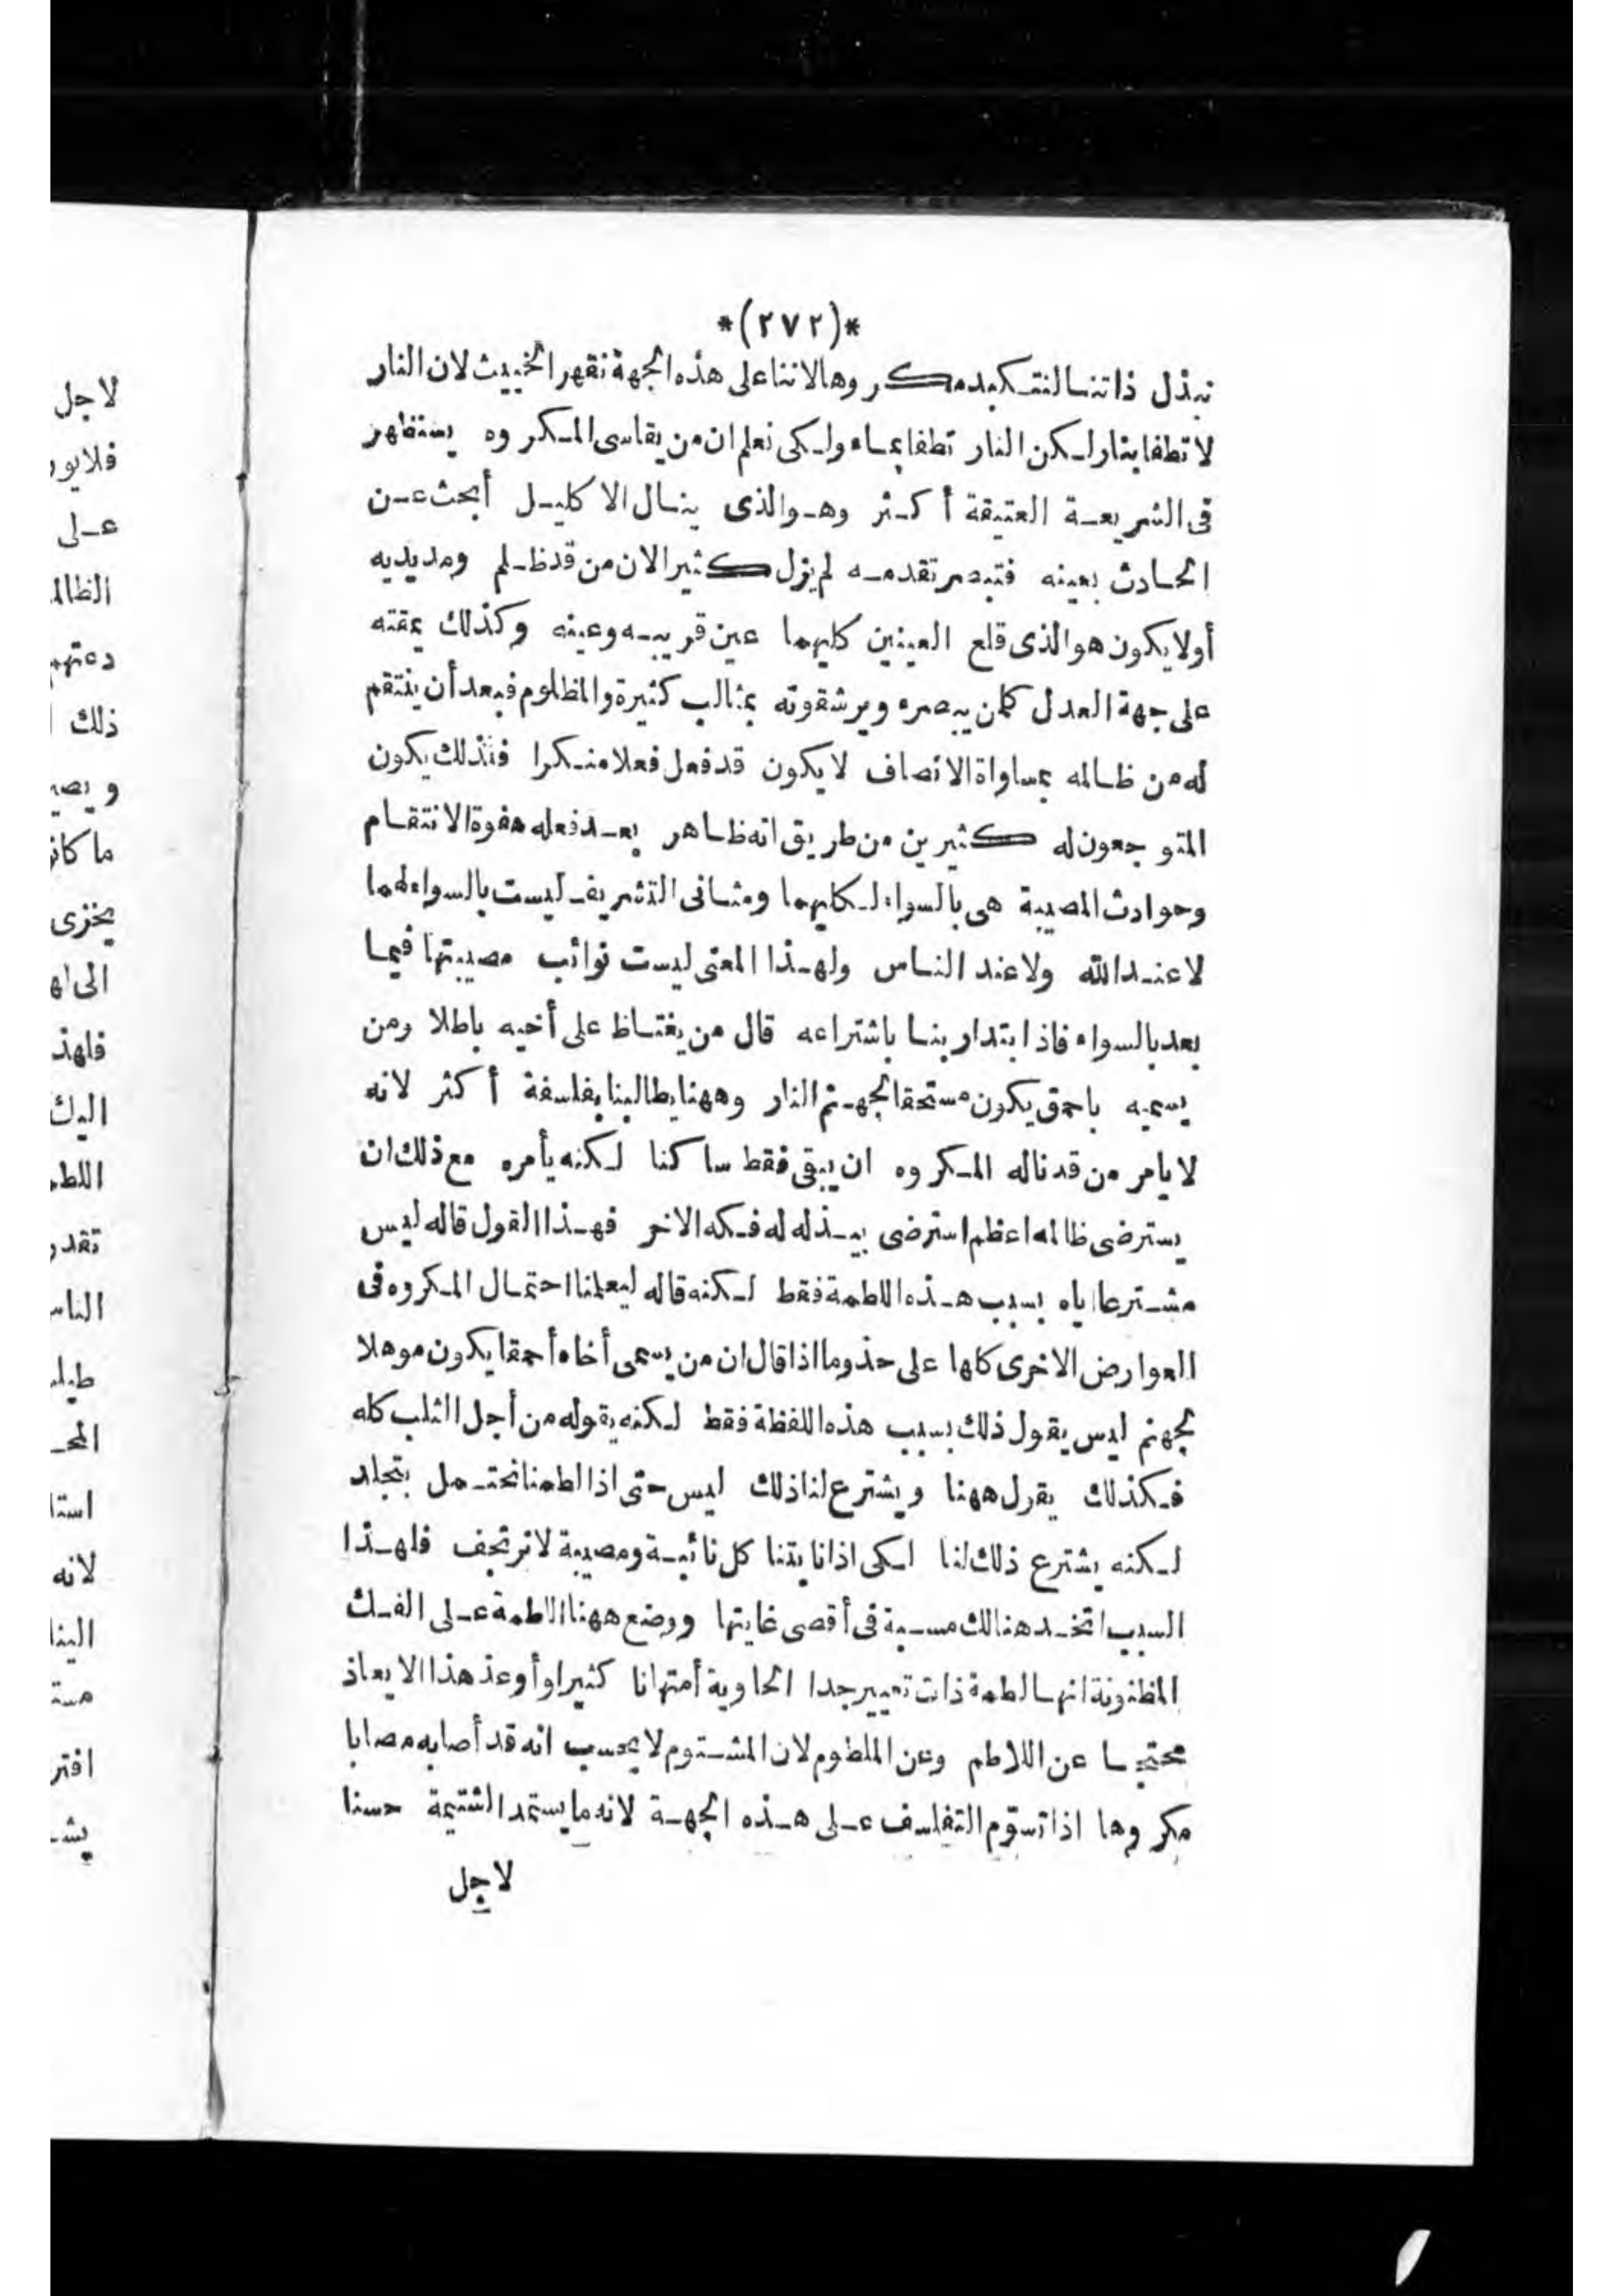 *(٢٧٢)*
نبذل ذاتنا لنتكبد مكروها لاننا على هذه الجهة نقهر الخبيث لان النار
لا تطفا بنار لكن النار تطفا بماء ولكى نعلم ان من يقاسى المكروه يستظهر
فى الشريعة العتيقة أكثر وهو الذى ينال الاكليل أبحث عن
الحادث بعينه فتبصر تقدمه لم يزل كثيرا لان من قد ظلم ومد يديه
أولا يكون هو الذى قلع العينين كليهما عين قريبه وعينه وكذلك يمقته
على جهة العدل كل من يبصره ويرشقوته بمثالب كثيرة والمظلوم فبعد أن ينتقم
له من ظالمه بمساواة الانصاف لا يكون قد فعل فعلا منكرا فتذلك يكون
المتوجعون له كثيرين من طريق انه ظاهر بعد فعله هفوة الانتقام
وحوادث المصيبة هى بالسواء لكليهما ومثانى التشريف ليست بالسواء لهما
لا عند الله ولا عند الناس ولهذا المعنى ليست نوائب مصيبتها فيما
بعد بالسواء فاذ ابتدا ربنا باشتراعه قال من يغتاظ على أخيه باطلا ومن
يسميه يا حمق يكون مستحقا لجهنم النار وههنا يطالبنا بفلسفة أكثر لانه
لا يامر من قد ناله المكروه ان يبقى فقط ساكنا لكنه يأمره مع ذلك ان
يسترضى ظالمه اعظم استرضى ببذله له فكه الاخر فهذا القول قاله ليس
مشترعا اياه بسبب هذه اللطمة فقط لكنه قاله ليعلمنا احتمال المكروه فى
العوارض الاخرى كلها على حذو ما اذا قال ان من يسمى أخاه أحمقا يكون موهلا
لجهنم ليس يقول ذلك بسبب هذه اللفظة فقط لكنه يقوله من أجل الثلب كله
فكذلك يقول ههنا ويشترع لنا ذلك ليس حتى اذا لطمنا نحتمل بتجلد
لكنه يشترع ذلك لنا لكى اذا نابتنا كل نائبة ومصيبة لا نرتجف فلهذا
السبب اتخد هنالك مسبة فى أقصى غايتها ووضع ههنا اللطمة على الفك
المظنونة انها لطمة ذات تعيير جدا الحاوية أمتهانا كثيرا وأوعذ هذا الايعاذ
محتجبا عن اللاطم وعن الملطوم لان المشتوم لا يحسب انه قد أصابه مصابا
مكروها اذا تسوّم التفلسف على هذه الجهة لانه ما يستمد الشتيمة حسنا
لاجل
لاجل
على
ذلك
ما كان
يخزى
فلهذ
اليك
لانه